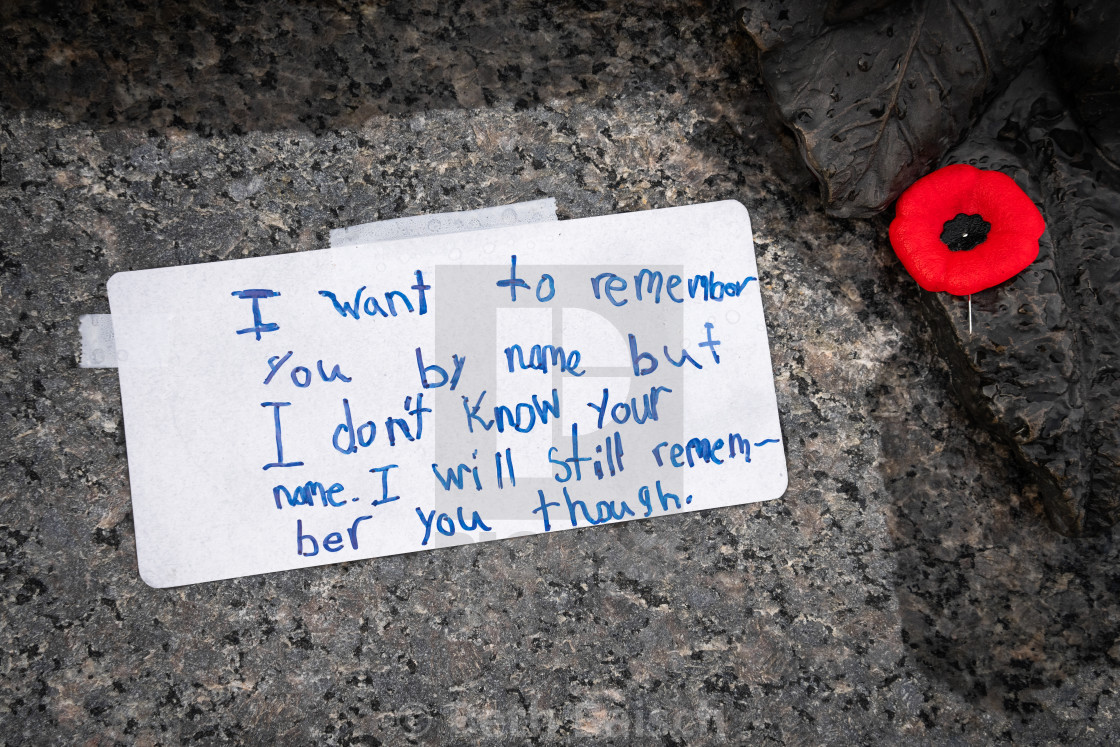 I want to remember
You by name but
I don't know your
name. I will still remem-
ber you though.